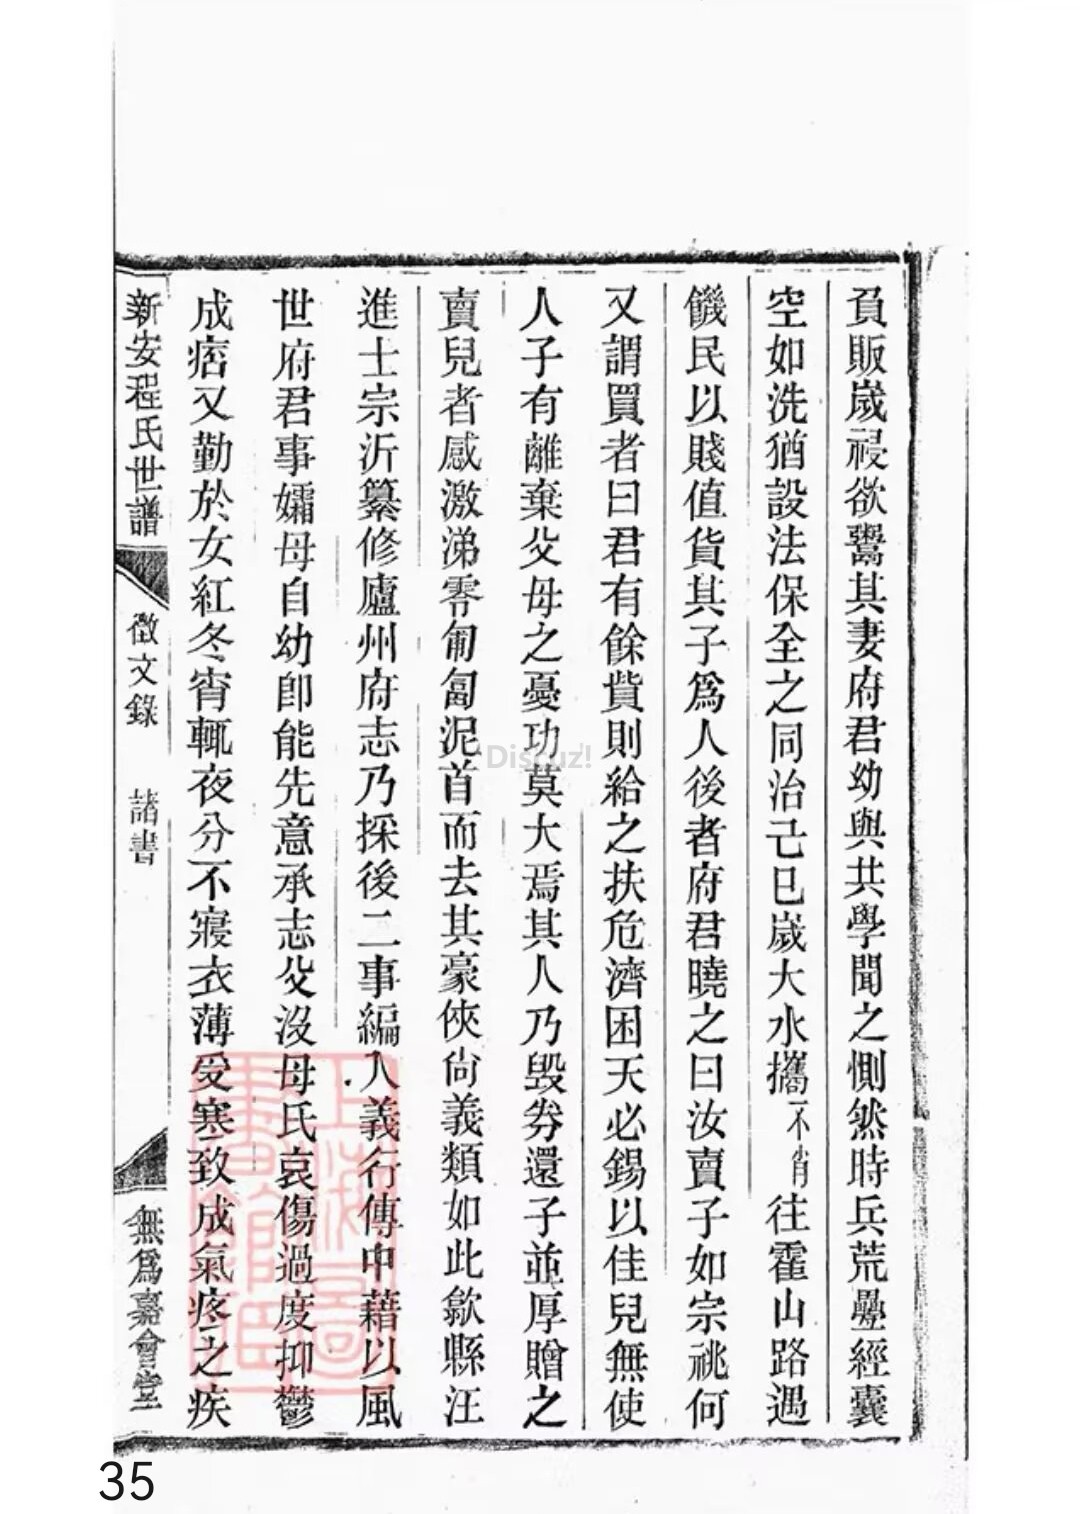 負販嵗祲欲鬻其妻府君幼與共學聞之惻然時兵荒疊經囊
空如洗猶設法保全之同治己巳嵗大水攜不肖往霍山路遇
饑民以賤值貨其子爲人後者府君曉之曰汝賣子如宗祧何
又謂買者曰君有餘貲則給之扶危濟困天必錫以佳兒無使
人子有離棄父母之憂功莫大焉其人乃毀券還子並厚贈之
賣兒者感激涕零匍匐泥首而去其豪俠尙義類如此歙縣汪
進士宗沂纂修廬州府志乃採後二事編入義行傳中藉以風
世府君事孀母自幼卽能先意承志父沒母氏哀傷過度抑鬱
成痞又勤於女紅冬宵輒夜分不寢衣薄受寒致成氣疼之疾
新安程氏世譜
徵文錄 諸書
無爲嘉會堂
上海圖書館藏
Discuz!
35